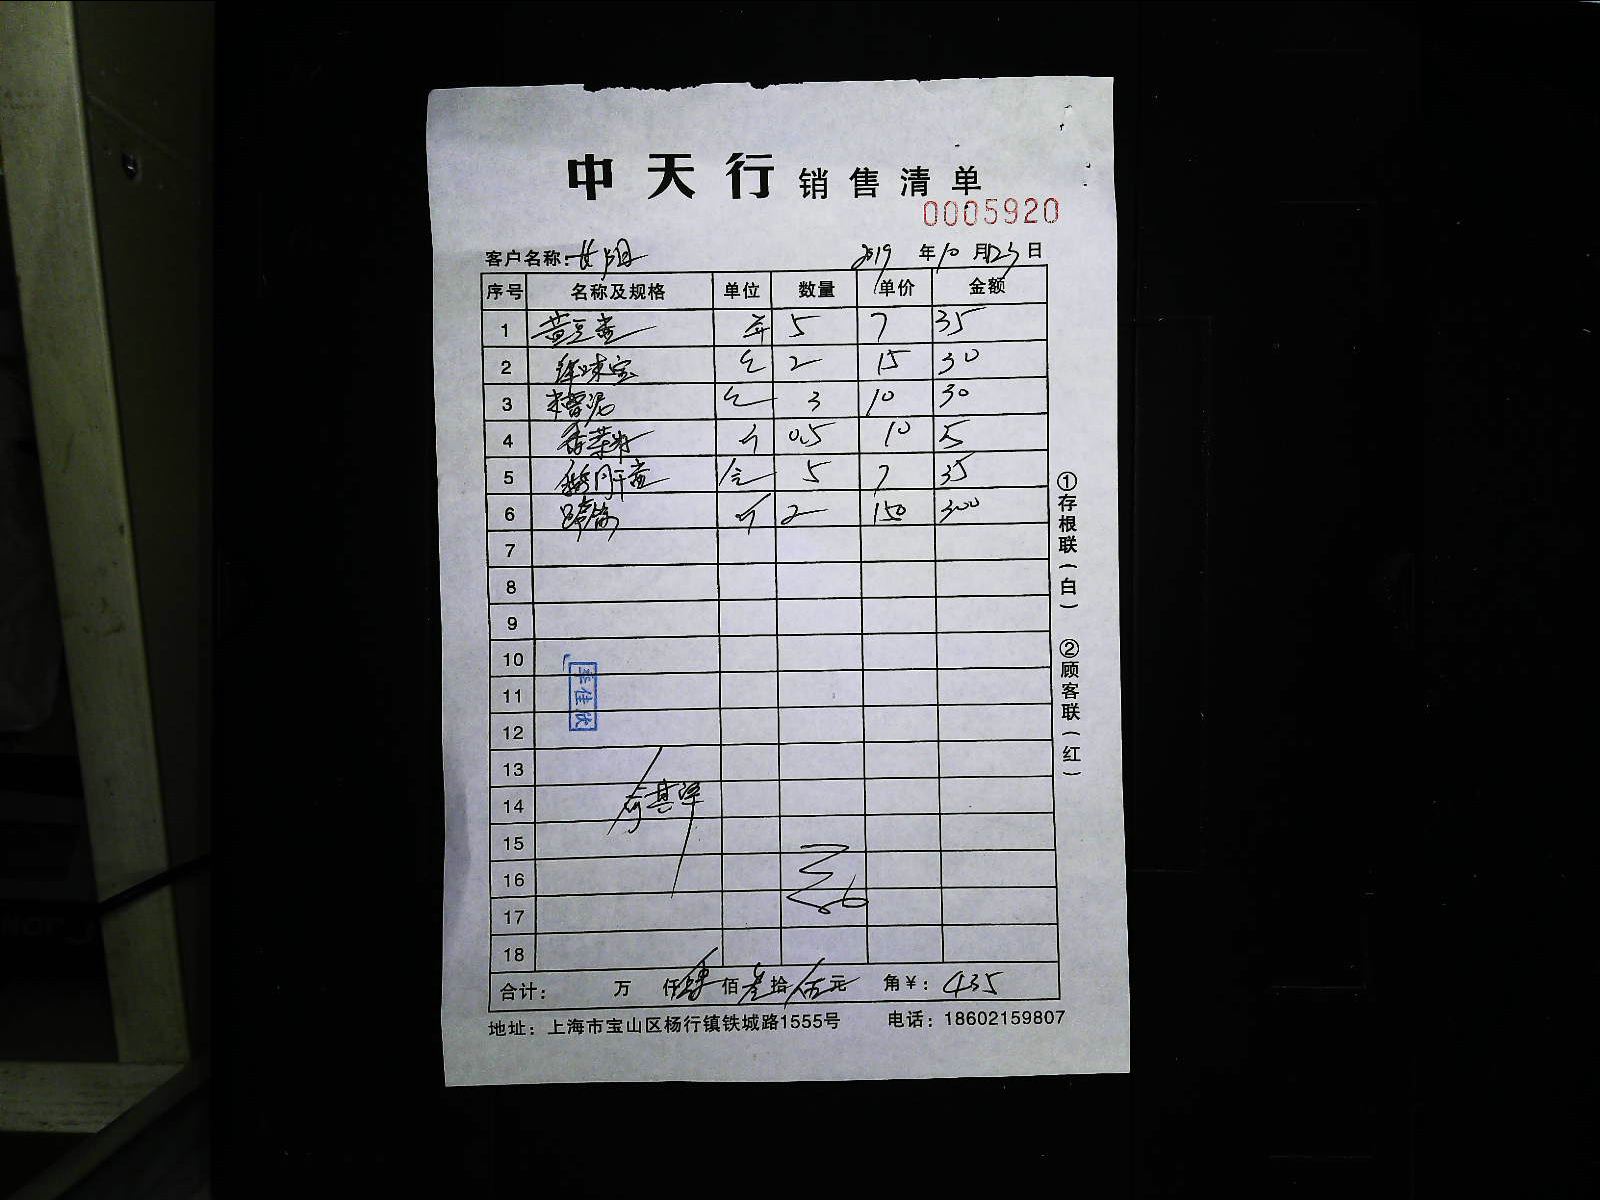 中天行 销售清单
0005920
客户名称: 2019 年 10 月 23 日
序号 名称及规格 单位 数量 单价 金额
1 黄豆酱 5 7 35
2 味宝 2 15 30
3 3 10 30
4 香菜籽 斤 0.5 10 5
5 5 7 35
6 斤 2 150 300
7
8
9
10
11
12
13
14
15
16
17
18
李佳欣
合计: 万 仟 肆 佰 叁 拾 伍 元 角 ¥: 435
地址: 上海市宝山区杨行镇铁城路1555号 电话: 18602159807
①存根联(白)
②顾客联(红)